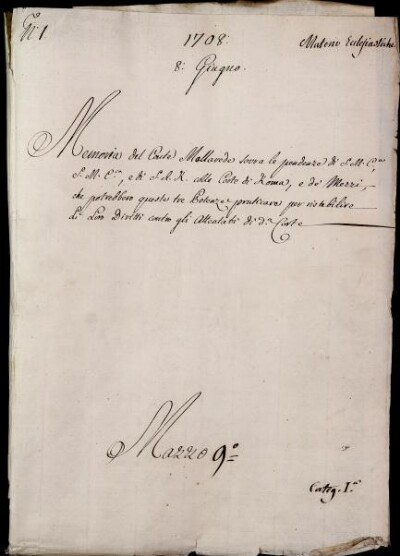 N.º 1.
1708.
Materie Ecclesiastiche
8. Giugno.
Memoria del Conte Mellarede sovra le pendenze di S. M. C.ea,
S. M. C.ca, e di S. A. R. colla Corte di Roma, e de' Mezzi,
che potrebbero queste tre Potenze praticare per ristabilire
li Loro Diritti contro gli Attentati di d.a Corte
Mazzo 9.º
Categ. I.a